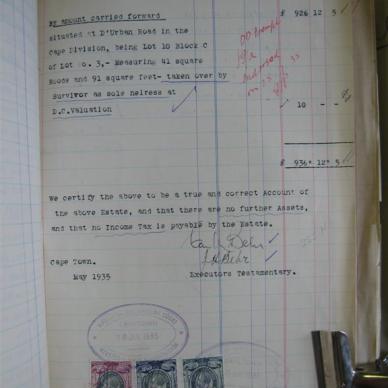 By amount carried forward £ 926 12 5
situated at D'Urban Road in the
Cape Division, being Lot 10 Block C
of Lot No. 3,- Measuring 41 square
Roods and 91 square feet- taken over by
Survivor as sole heiress at
D.C.Valuation 10 - -
£ 936 12 5
We certify the above to be a true and correct Account of
the above Estate, and that there are no further Assets,
and that no Income Tax is payable by the Estate.
Cape Town.
May 1935 Executors Testamentary.